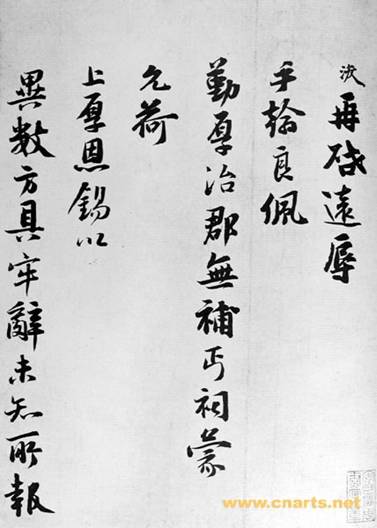 再啓遠辱
手翰良佩
勤厚治郡無補丐祠蒙
允荷
上厚恩錫以
異數方具牢辭未知所報
www.cnarts.net